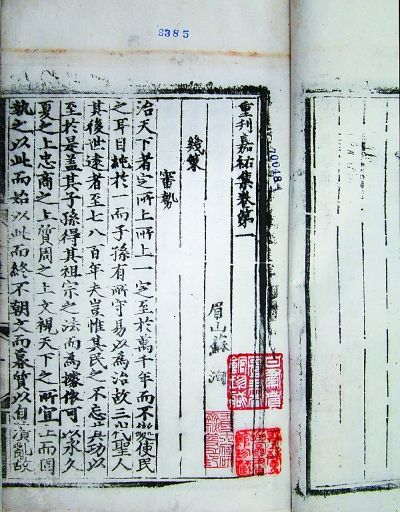 8385
重刋嘉祐集卷第一
眉山蘇 洵
幾策
審勢
治天下者定所上所上一定至於萬千年而不變使民
之耳目純於一而子孫有所守易以為治故三代聖人
其後世逺者至七八百年夫豈惟其民之不忘其功以
至於是盖其子孫得其祖宗之法而為據依可以永久
夏之上忠商之上質周之上文視天下之所宜上而固
執之以此而始以此而終不朝文而暮質以自潰亂故